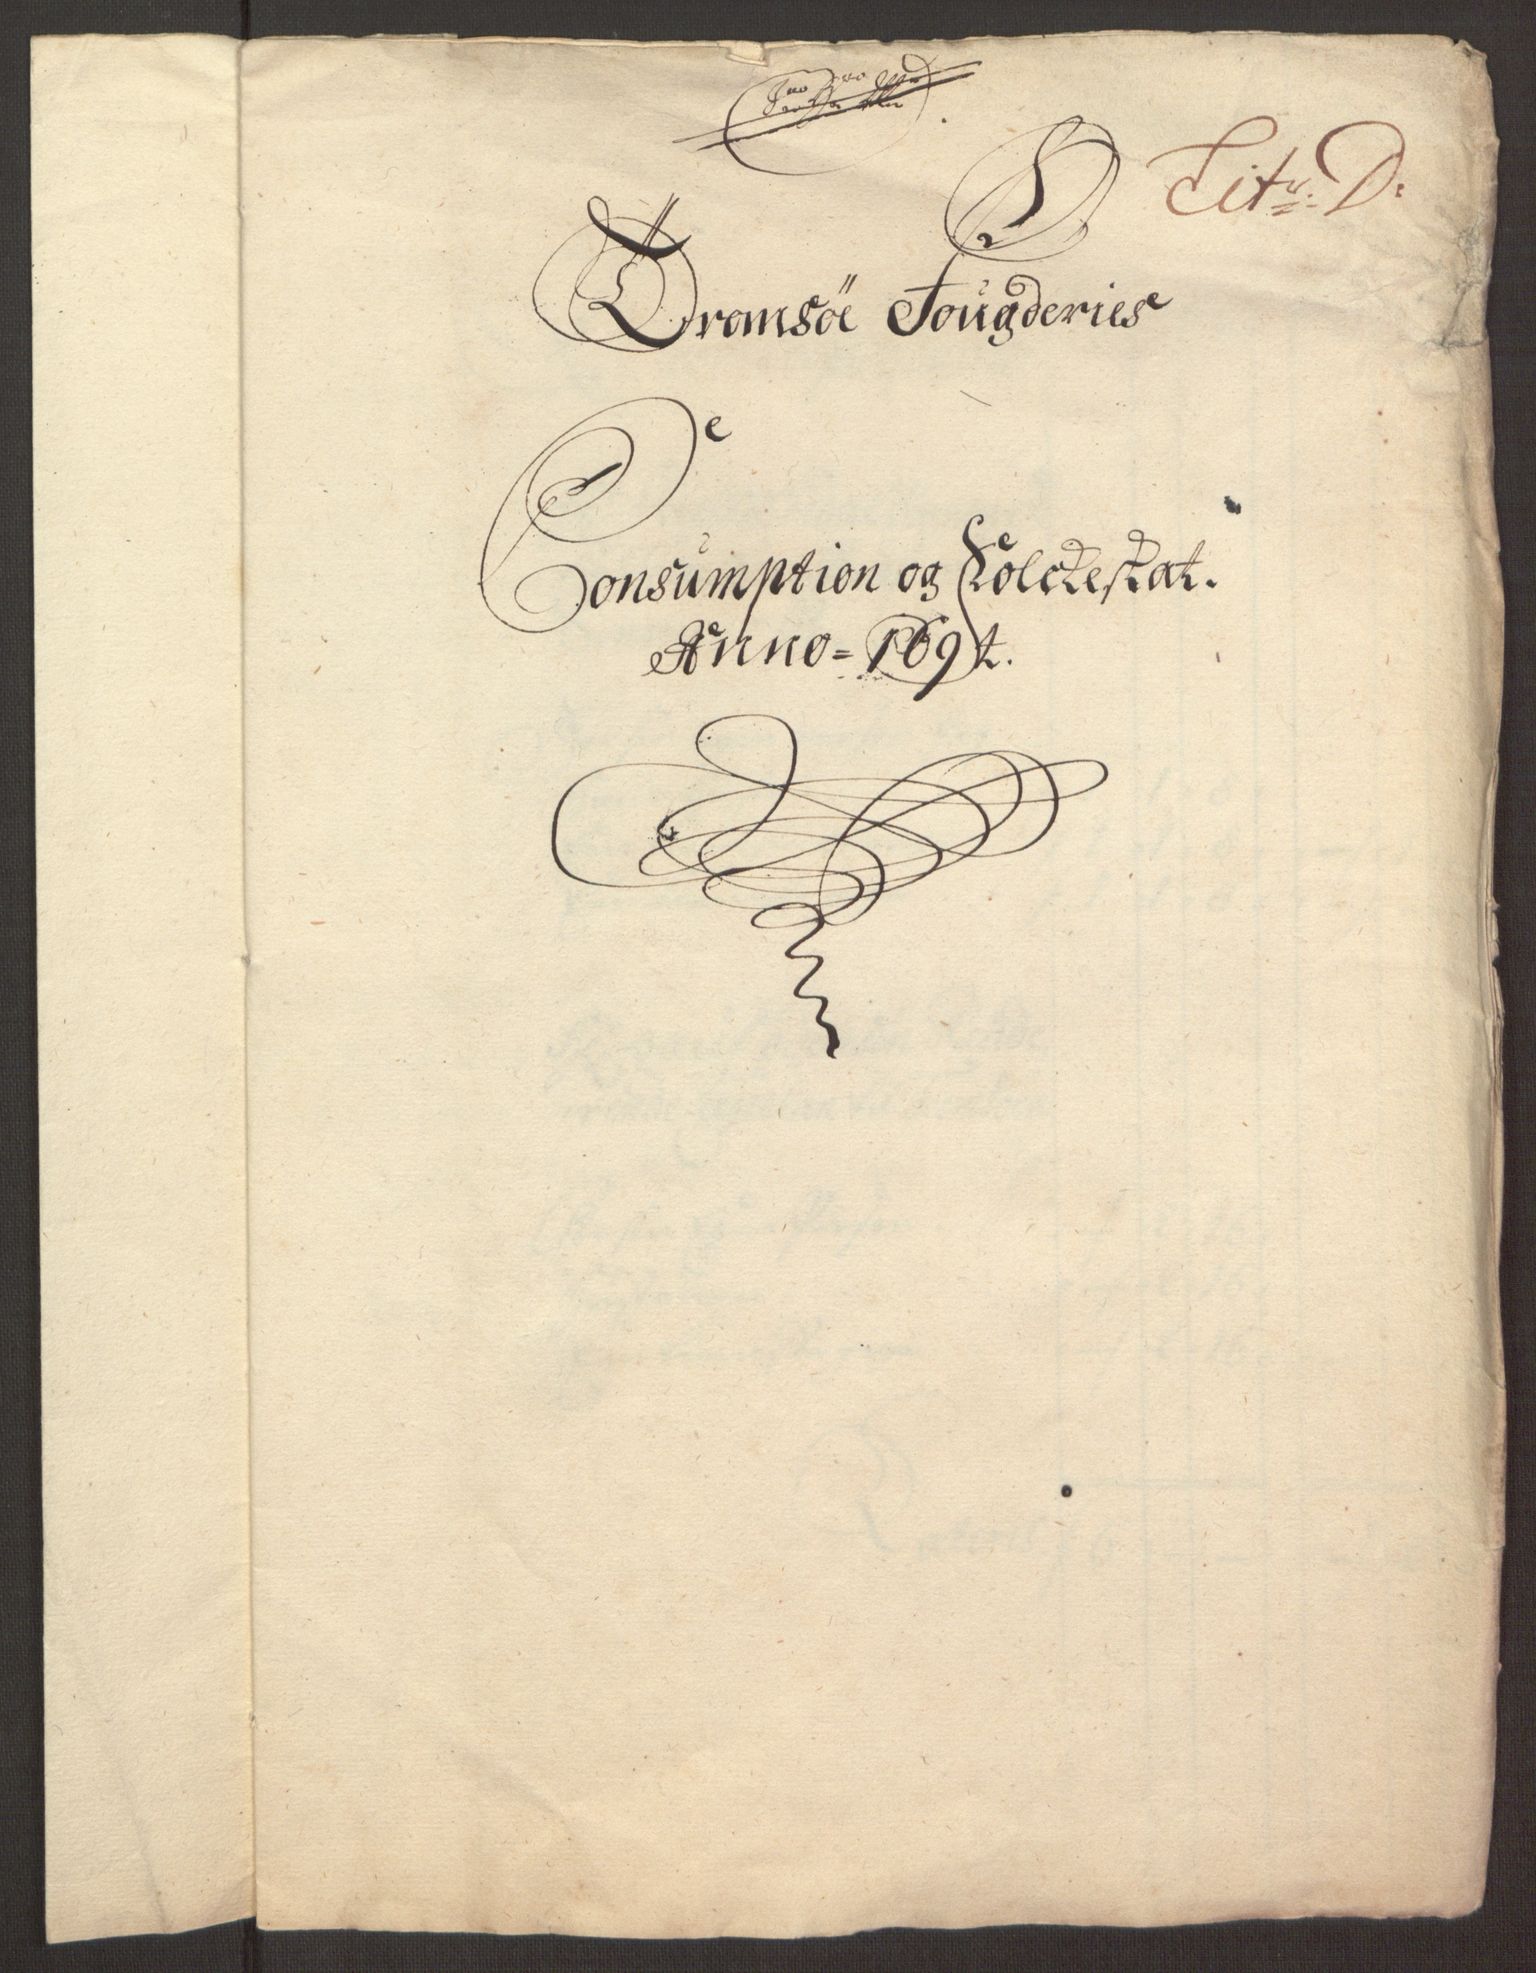 Litr. D:
Tromsöe Fougderies
Consumption og Folckeskat.
Anno = 1694.